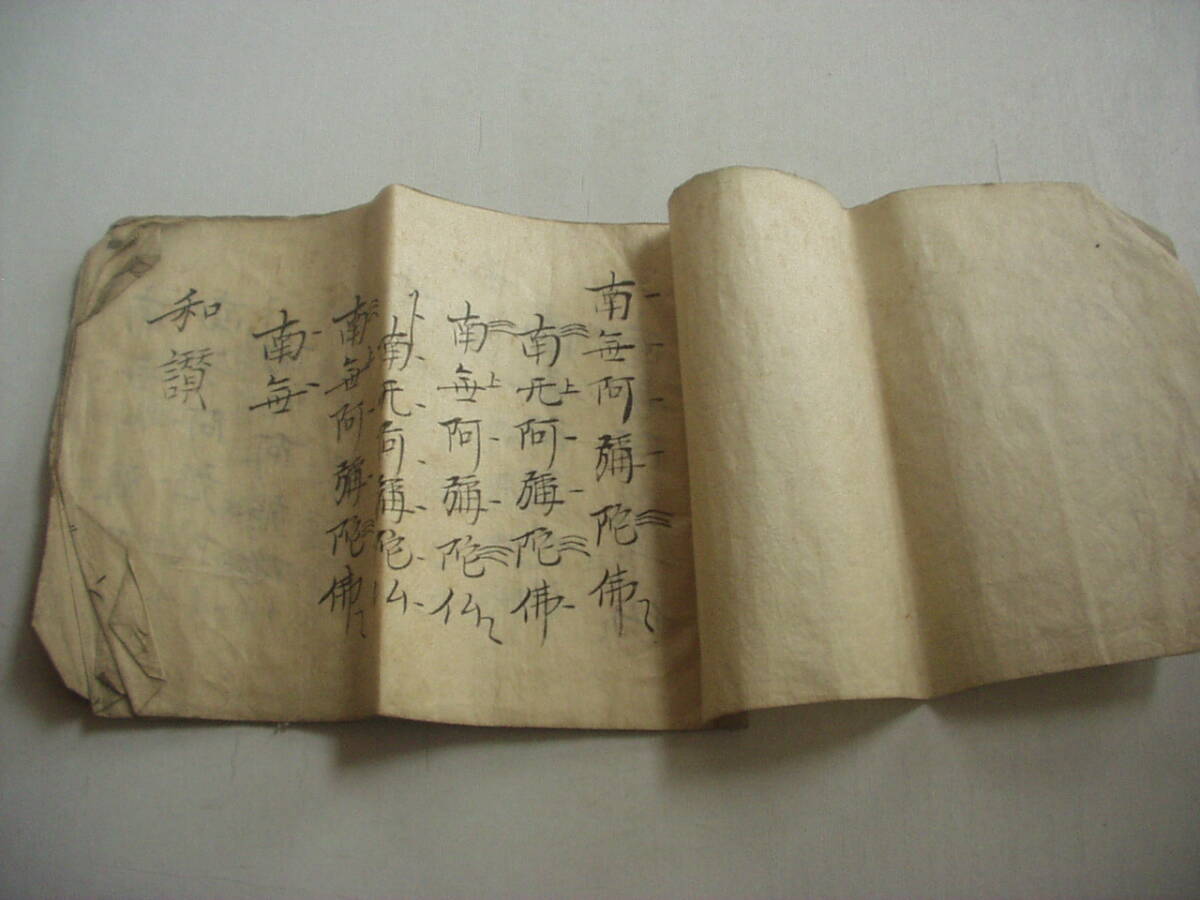 南無阿彌陀佛
南无上阿彌陀佛
南無上阿彌陀仏
南无阿彌陀仏
南無上阿彌陀佛
南無
和讃